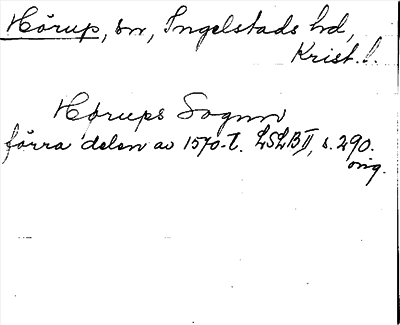 Hörup, sn, Ingelstads hd,
Krist. l.
Hørups Sognn
förra delen av 1570-t. LSLB II, s. 290.
orig.